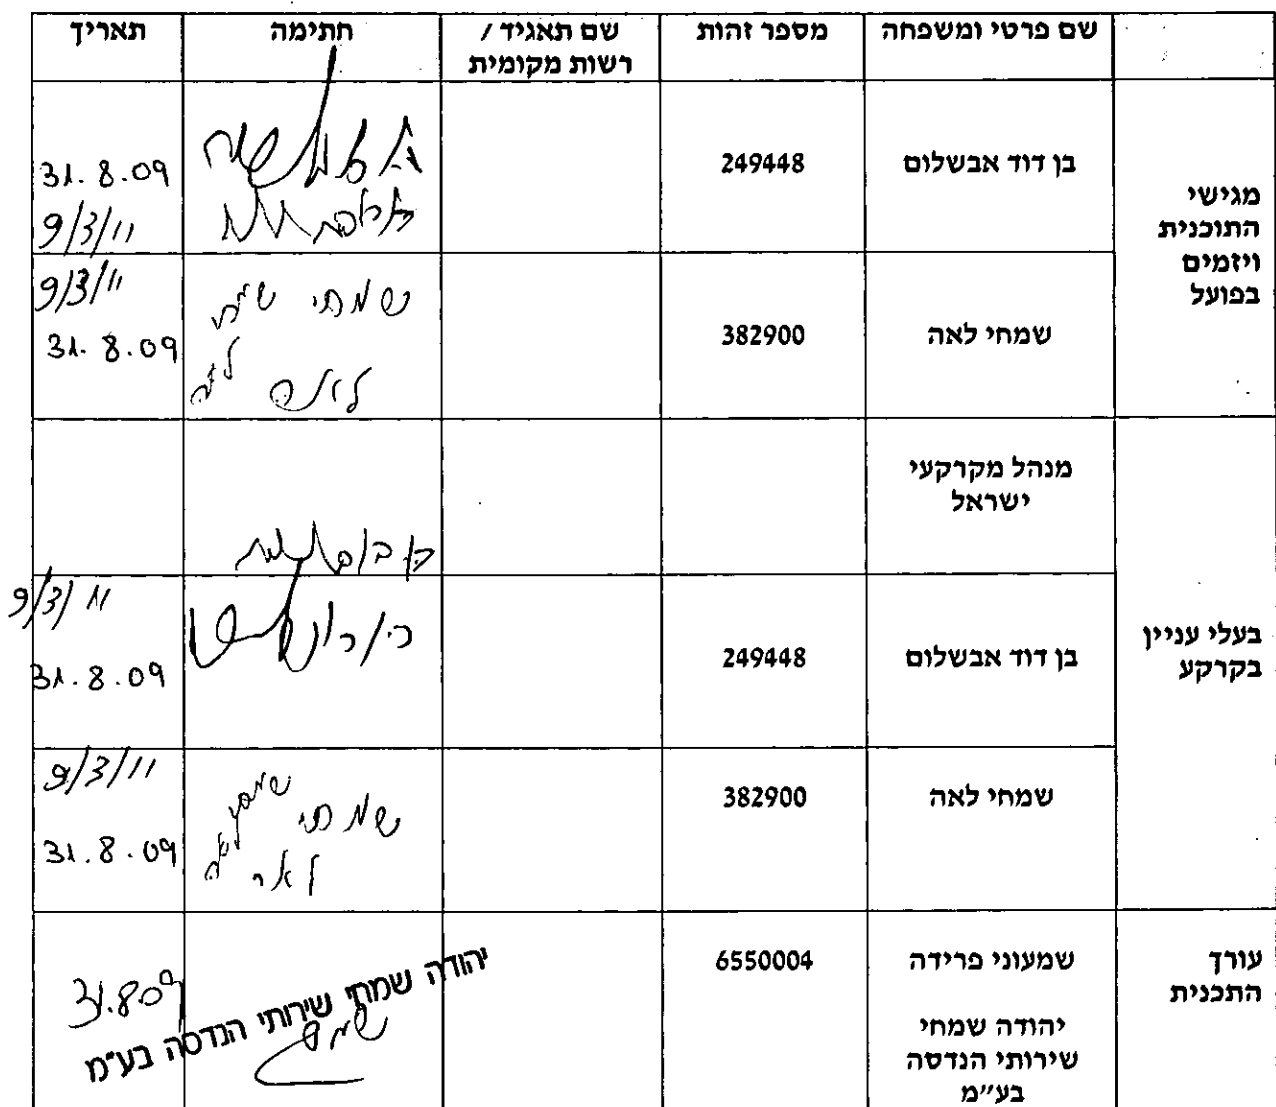 שם פרטי ומשפחה מספר זהות שם תאגיד / רשות מקומית חתימה תאריך
מגישי
התוכנית
ויזמים
בפועל
בן דוד אבשלום 249448 31.8.09
9/3/11
שמחי לאה 382900 שמחי 9/3/11
לאה 31.8.09
בעלי עניין
בקרקע
מנהל מקרקעי
ישראל
בן דוד אבשלום 249448 9/3/11
31.8.09
שמחי לאה 382900 שמחי 9/3/11
לאה 31.8.09
עורך
התכנית
שמעוני פרידה 6550004 31.8.09
יהודה שמחי
שירותי הנדסה
בע״מ
יהודה שמחי שירותי הנדסה בע״מ